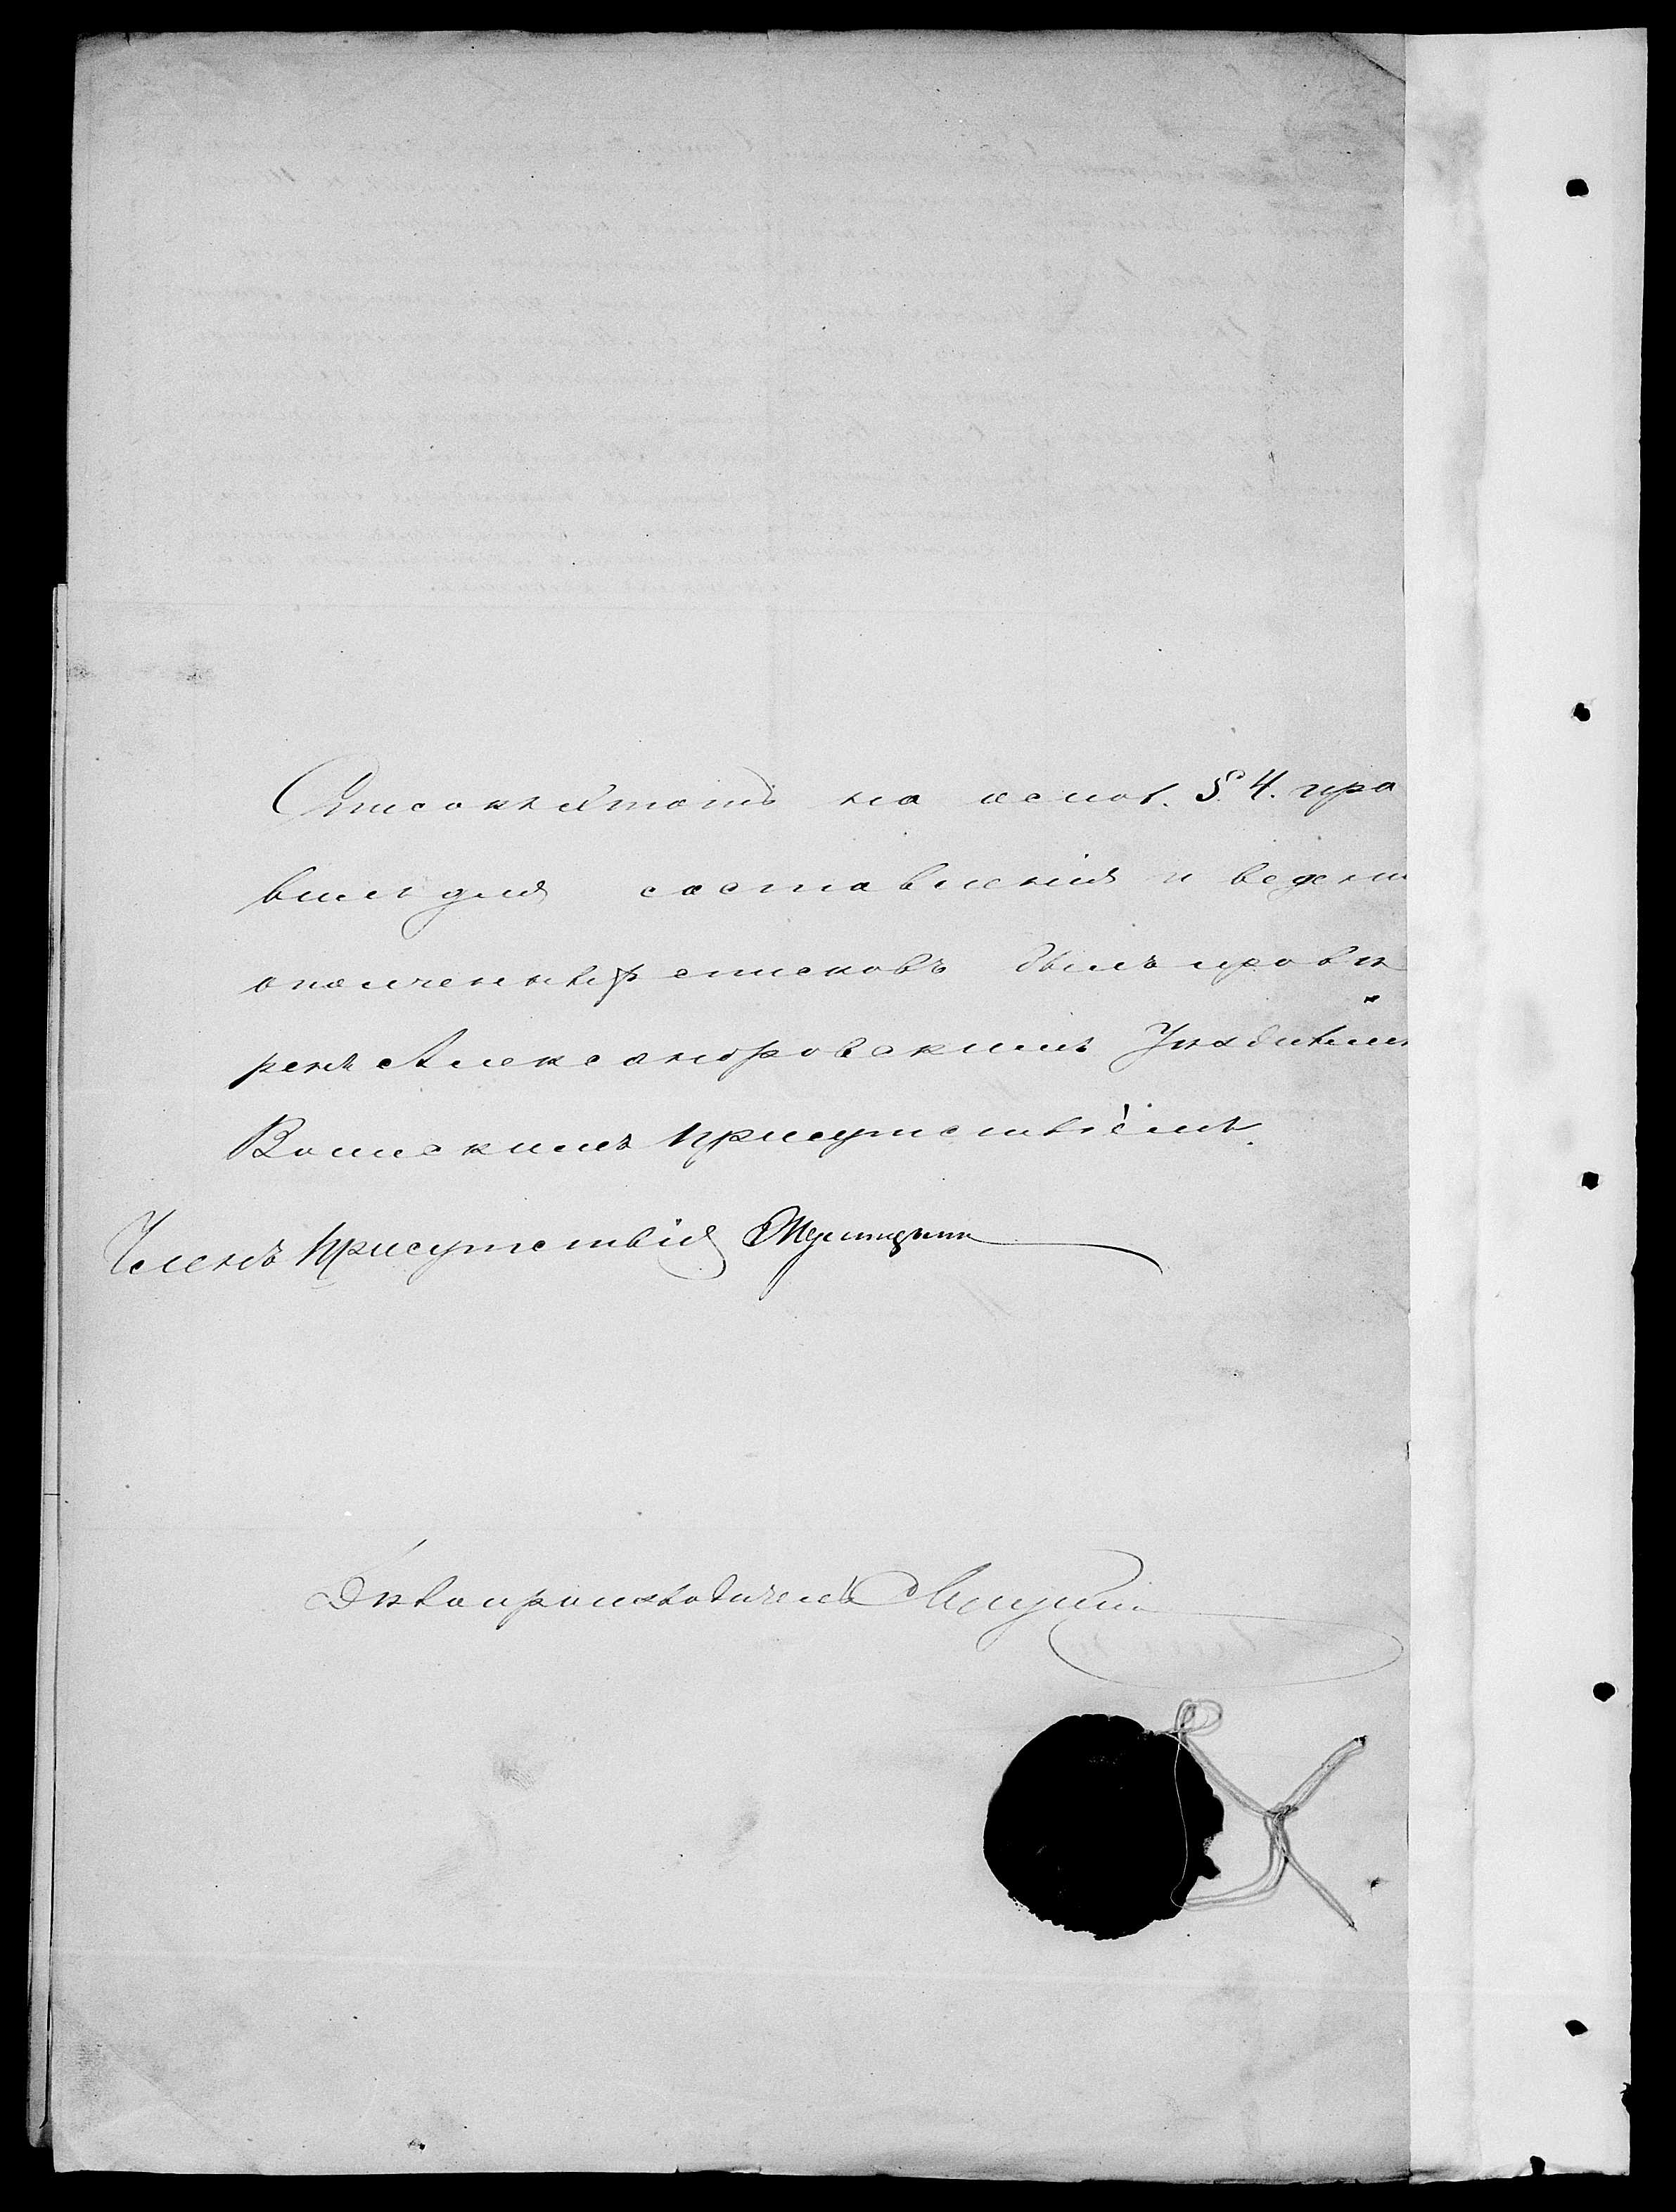 Списокъ этотъ на основ. § 4. пра
вилъ для составленія и веденія
ополченныхъ списковъ былъ провѣ
ренъ Александровскимъ Уѣзднымъ
Воинскимъ Присутствіемъ.
Членъ Присутствія
Дѣлопроизводитель